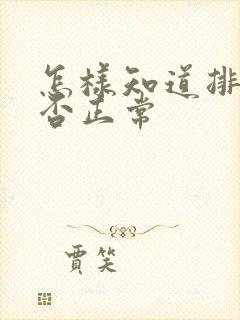 怎樣知道排
否正常
賈笑